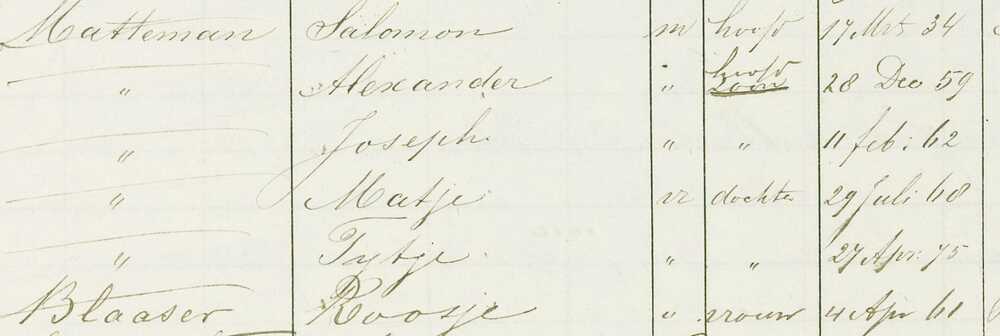 Matteman Salomon m hoofd 17 Mrt 34
" Alexander " hoofd zoon 28 Dec 59
" Joseph " " 11 feb: 62
" Matje vr dochter 29 Juli 68
" Tytje " " 27 Apr: 75
Blaaser Roosje " vrouw 4 Apr 61